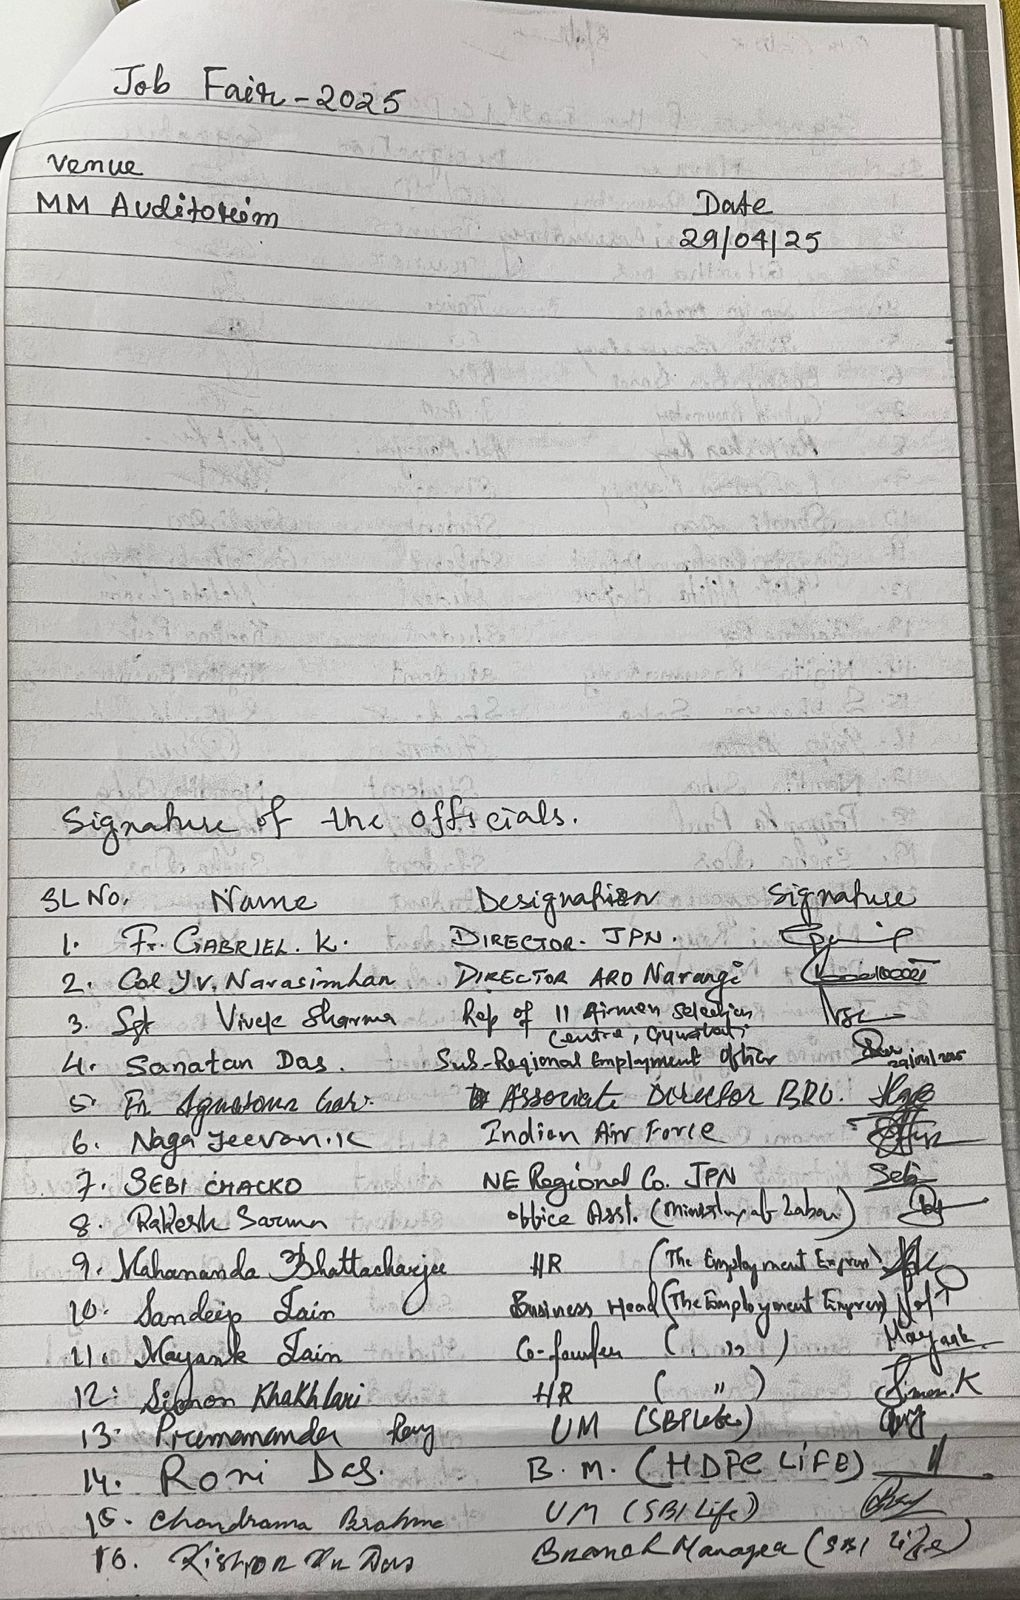 Job Fair - 2025
Venue
MM Auditorium
Date
29/04/25
Signature of the officials.
SL No. Name Designation Signature
1. Fr. GABRIEL. K. DIRECTOR. JPN.
2. Col Y V. Narasimhan DIRECTOR ARO Narangi
3. Sgt Vivek Sharma Rep of 11 Airmen Selection
Centre, Guwahati
4. Sanatan Das. Sub-Regional Employment Officer
5. Fr. Associate Director BRO.
6. Naga Jeevan. K Indian Air Force
7. SEBI CHACKO NE Regional Co. JPN Sebi
8 Rakesh Sarma Office Asst. (Ministry of Labour)
9. Mahananda Bhattacharjee HR (The Employment Express)
10. Sandeep Jain Business Head (The Employment Express)
11. Mayank Jain Co-founder ( ,, ) Mayank
12. Simon Khakhlari HR ( " ) Simon. K
13. Premananda Roy UM (SBI Life)
14. Roni Das. B. M. (HDFC LIFE)
15. Chandrama Brahma UM (SBI Life)
16. Kishor Kr Das Branch Manager (SBI Life)